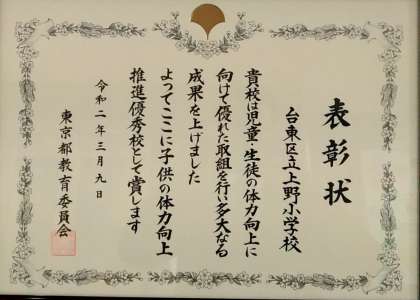 表彰状
台東区立上野小学校
貴校は児童・生徒の体力向上に
向けて優れた取組を行い多大なる
成果を上げました
よってここに子供の体力向上
推進優秀校として賞します
令和二年三月九日
東京都教育委員会